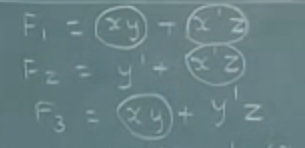 F₁ = xy + x'z
F₂ = y' + x'z
F₃ = xy + y'z